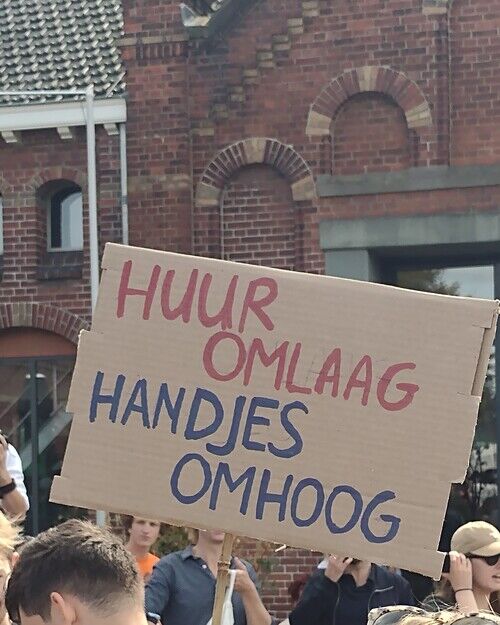 HUUR
OMLAAG
HANDJES
OMHOOG